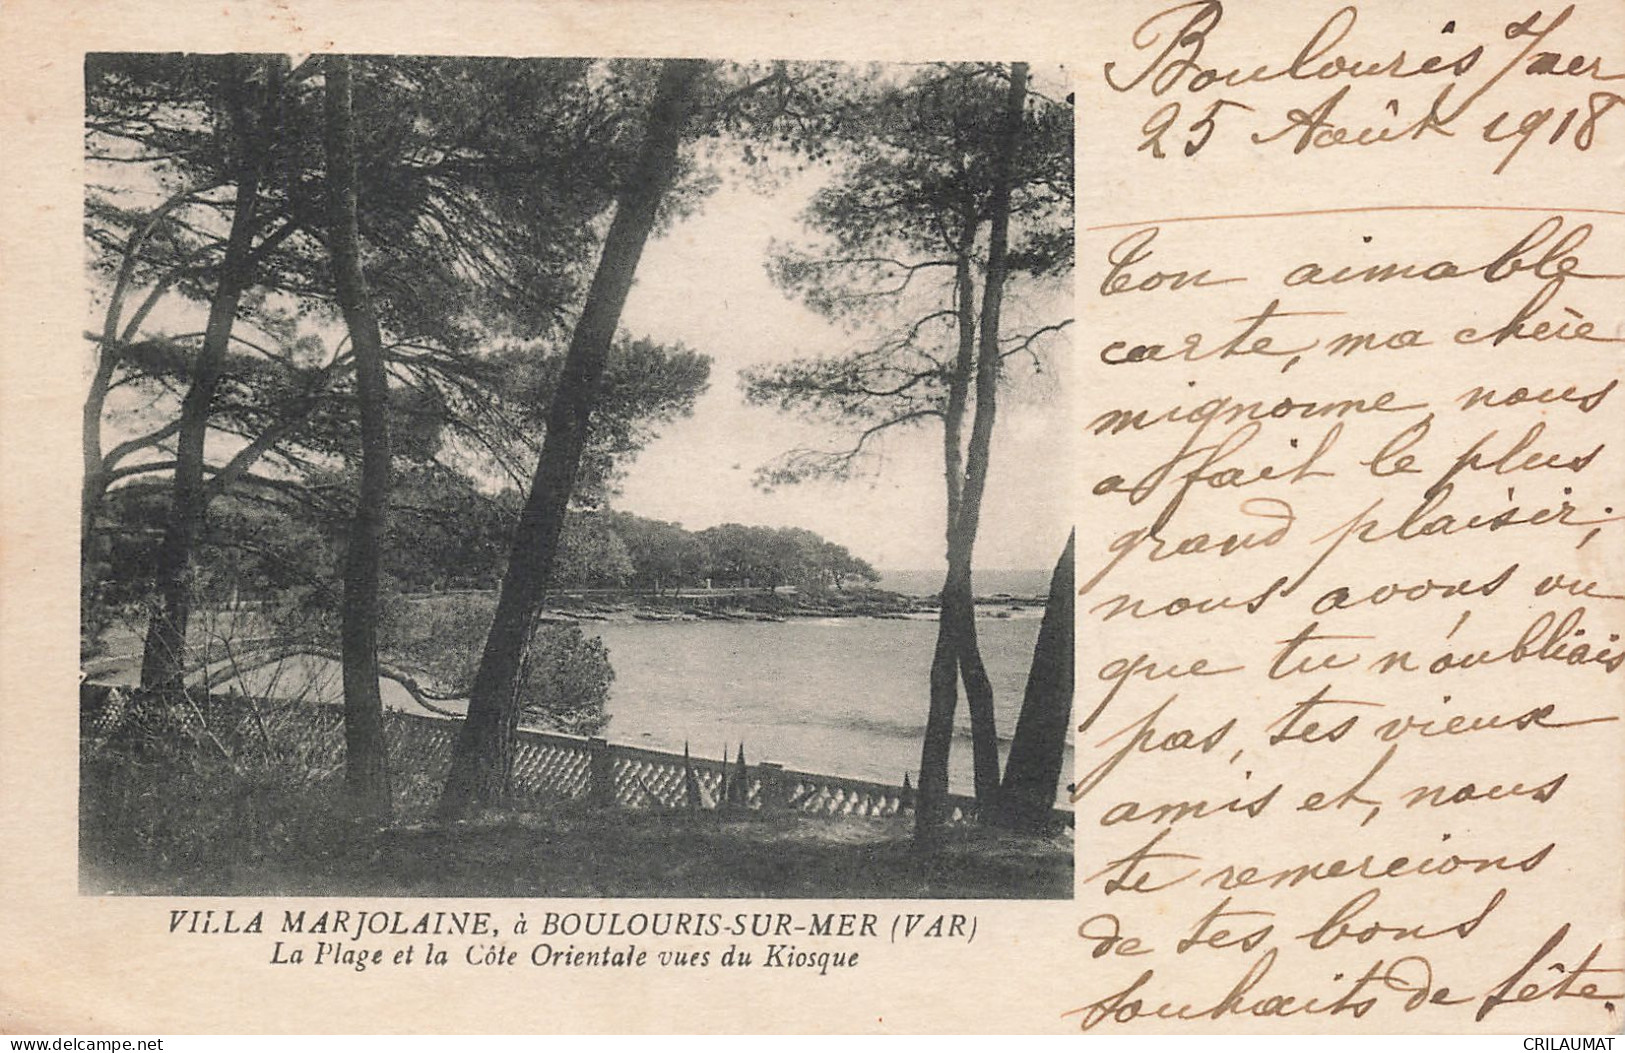 Boulouris s/mer
25 Août 1918
Ton aimable
carte, ma chère
mignonne, nous
a fait le plus
grand plaisir;
nous avons vu
que tu n'oubliais
pas, tes vieux
amis et, nous
te remercions
de tes bons
souhaits de fête.
VILLA MARJOLAINE, à BOULOURIS-SUR-MER (VAR)
La Plage et la Côte Orientale vues du Kiosque
https://www.delcampe.net
CRILAUMAT